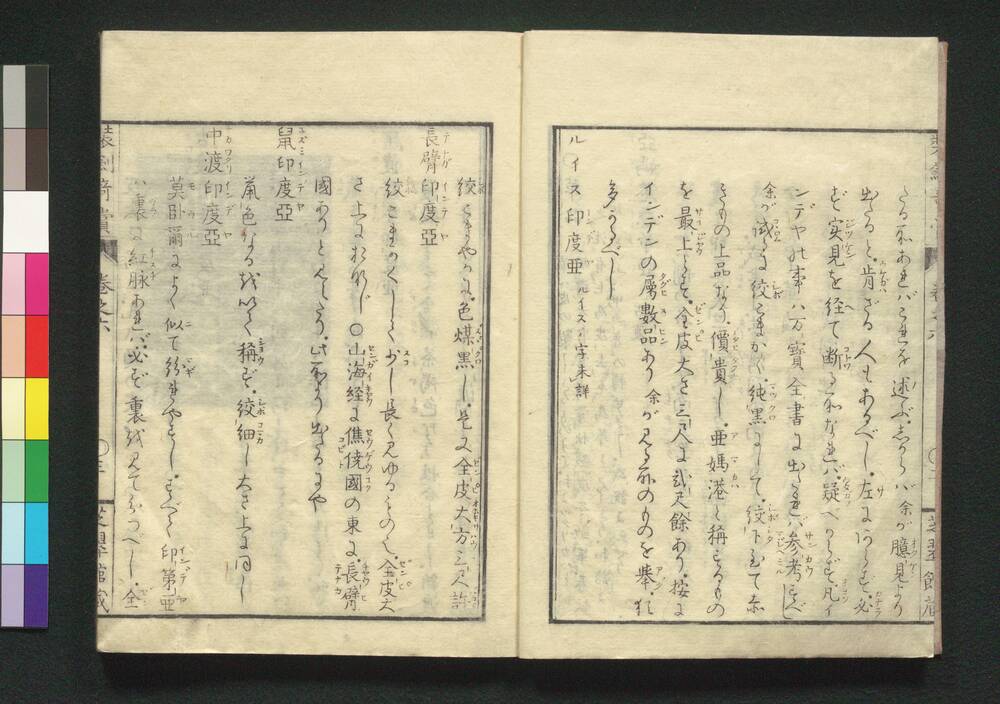 たる所あればこれを述ぶ。しからバ余が臆見より
出たると。肯ざる人もあるべし。左にあらず。必
ず実見を経て断る所なれバ疑べからず。凡イ
ンデヤの事ハ万寳全書に出たれバ参考すべし
余が試るに絞こまかく。純黒にして。絞下むて赤
きもの上品なり。價貴し。亜媽港と称するもの
を最上とす。全皮大さ三尺に弐尺餘あり。按に
インデンの属數品あり余が見る所のものを舉。
多からべし
ルイス印度亜 ルイスの字未詳
絞こまやかに。色煤黒し。是又全皮大方三尺許
長臂印度亜
絞こまかくして少し長く見ゆるものと。全皮大
さ上におなじ〇山海経に僬僥國の東に長臂
國ありと見えたり。此所より出たるにや
鼠印度亜
鼠色なるを以て稱ず。絞細し大さ上に同じ
中渡印度亜
莫臥爾によく似て紛れやすし。すべて印第亜
ハ裏に紅脉あれバ必ず裏を見てわかつべし。全
装劍奇賞 巻之六
〇三
芝翠館藏